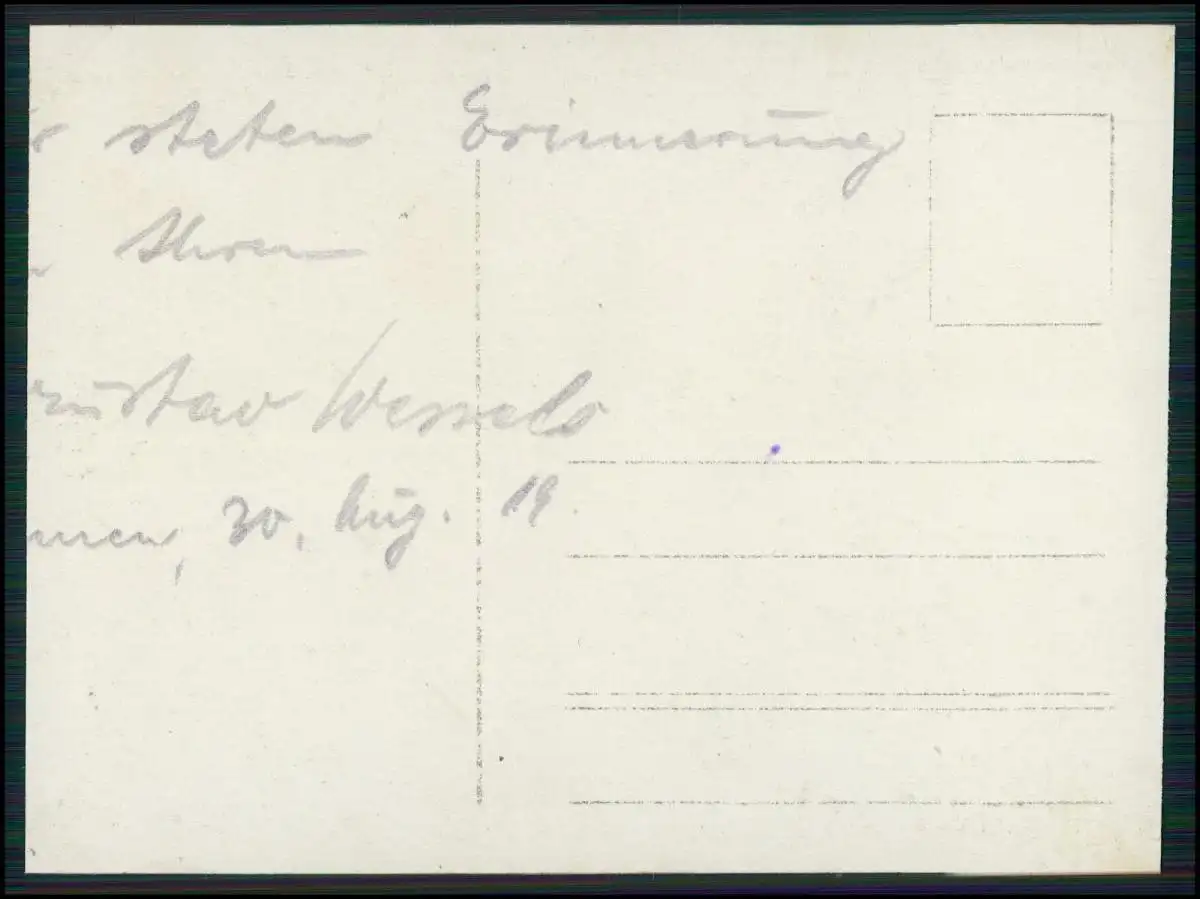 r steten Erinnerung
n Ihren
Gustav Wessels
men, 30. Aug. 19